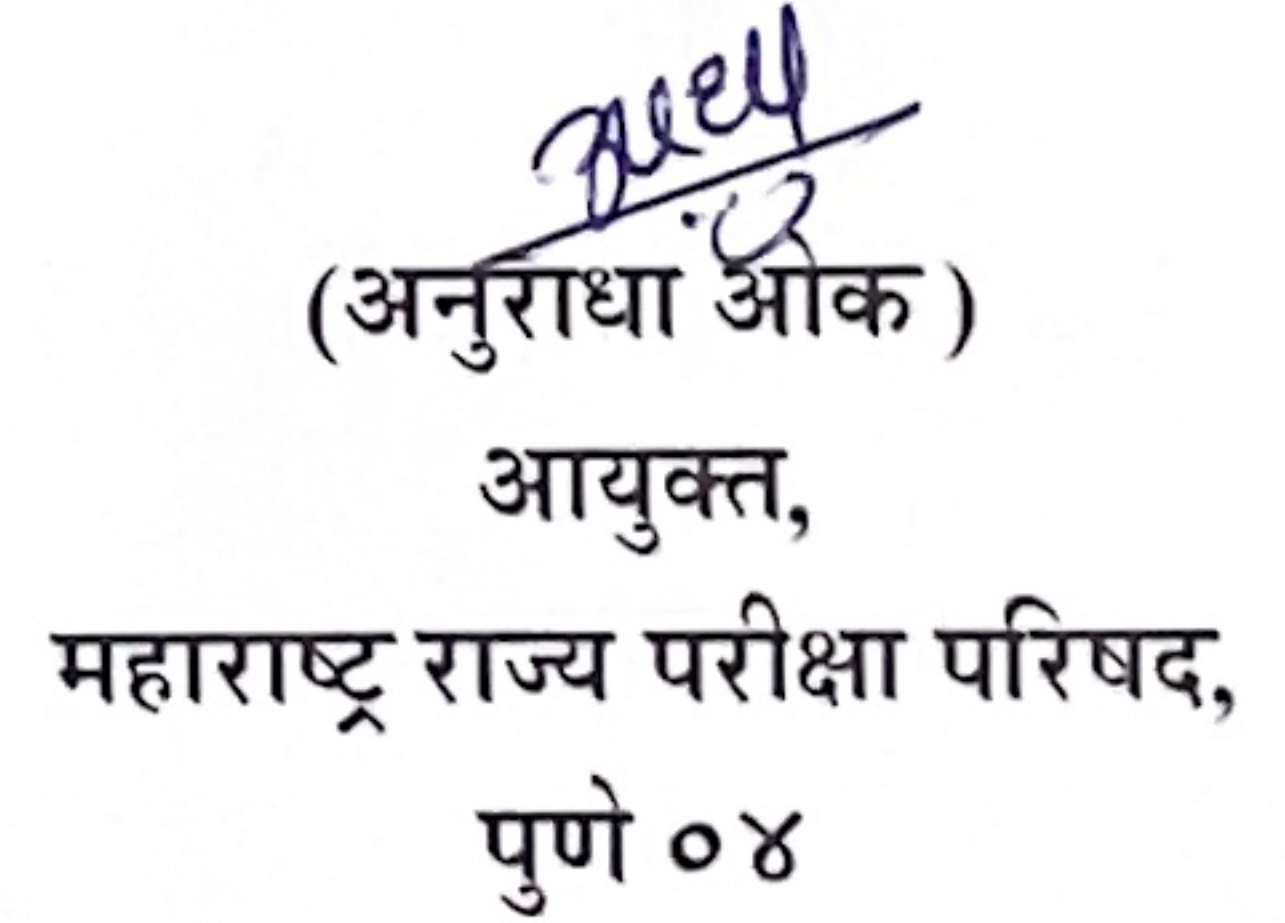 (अनुराधा ओक )
आयुक्त,
महाराष्ट्र राज्य परीक्षा परिषद,
पुणे ०४